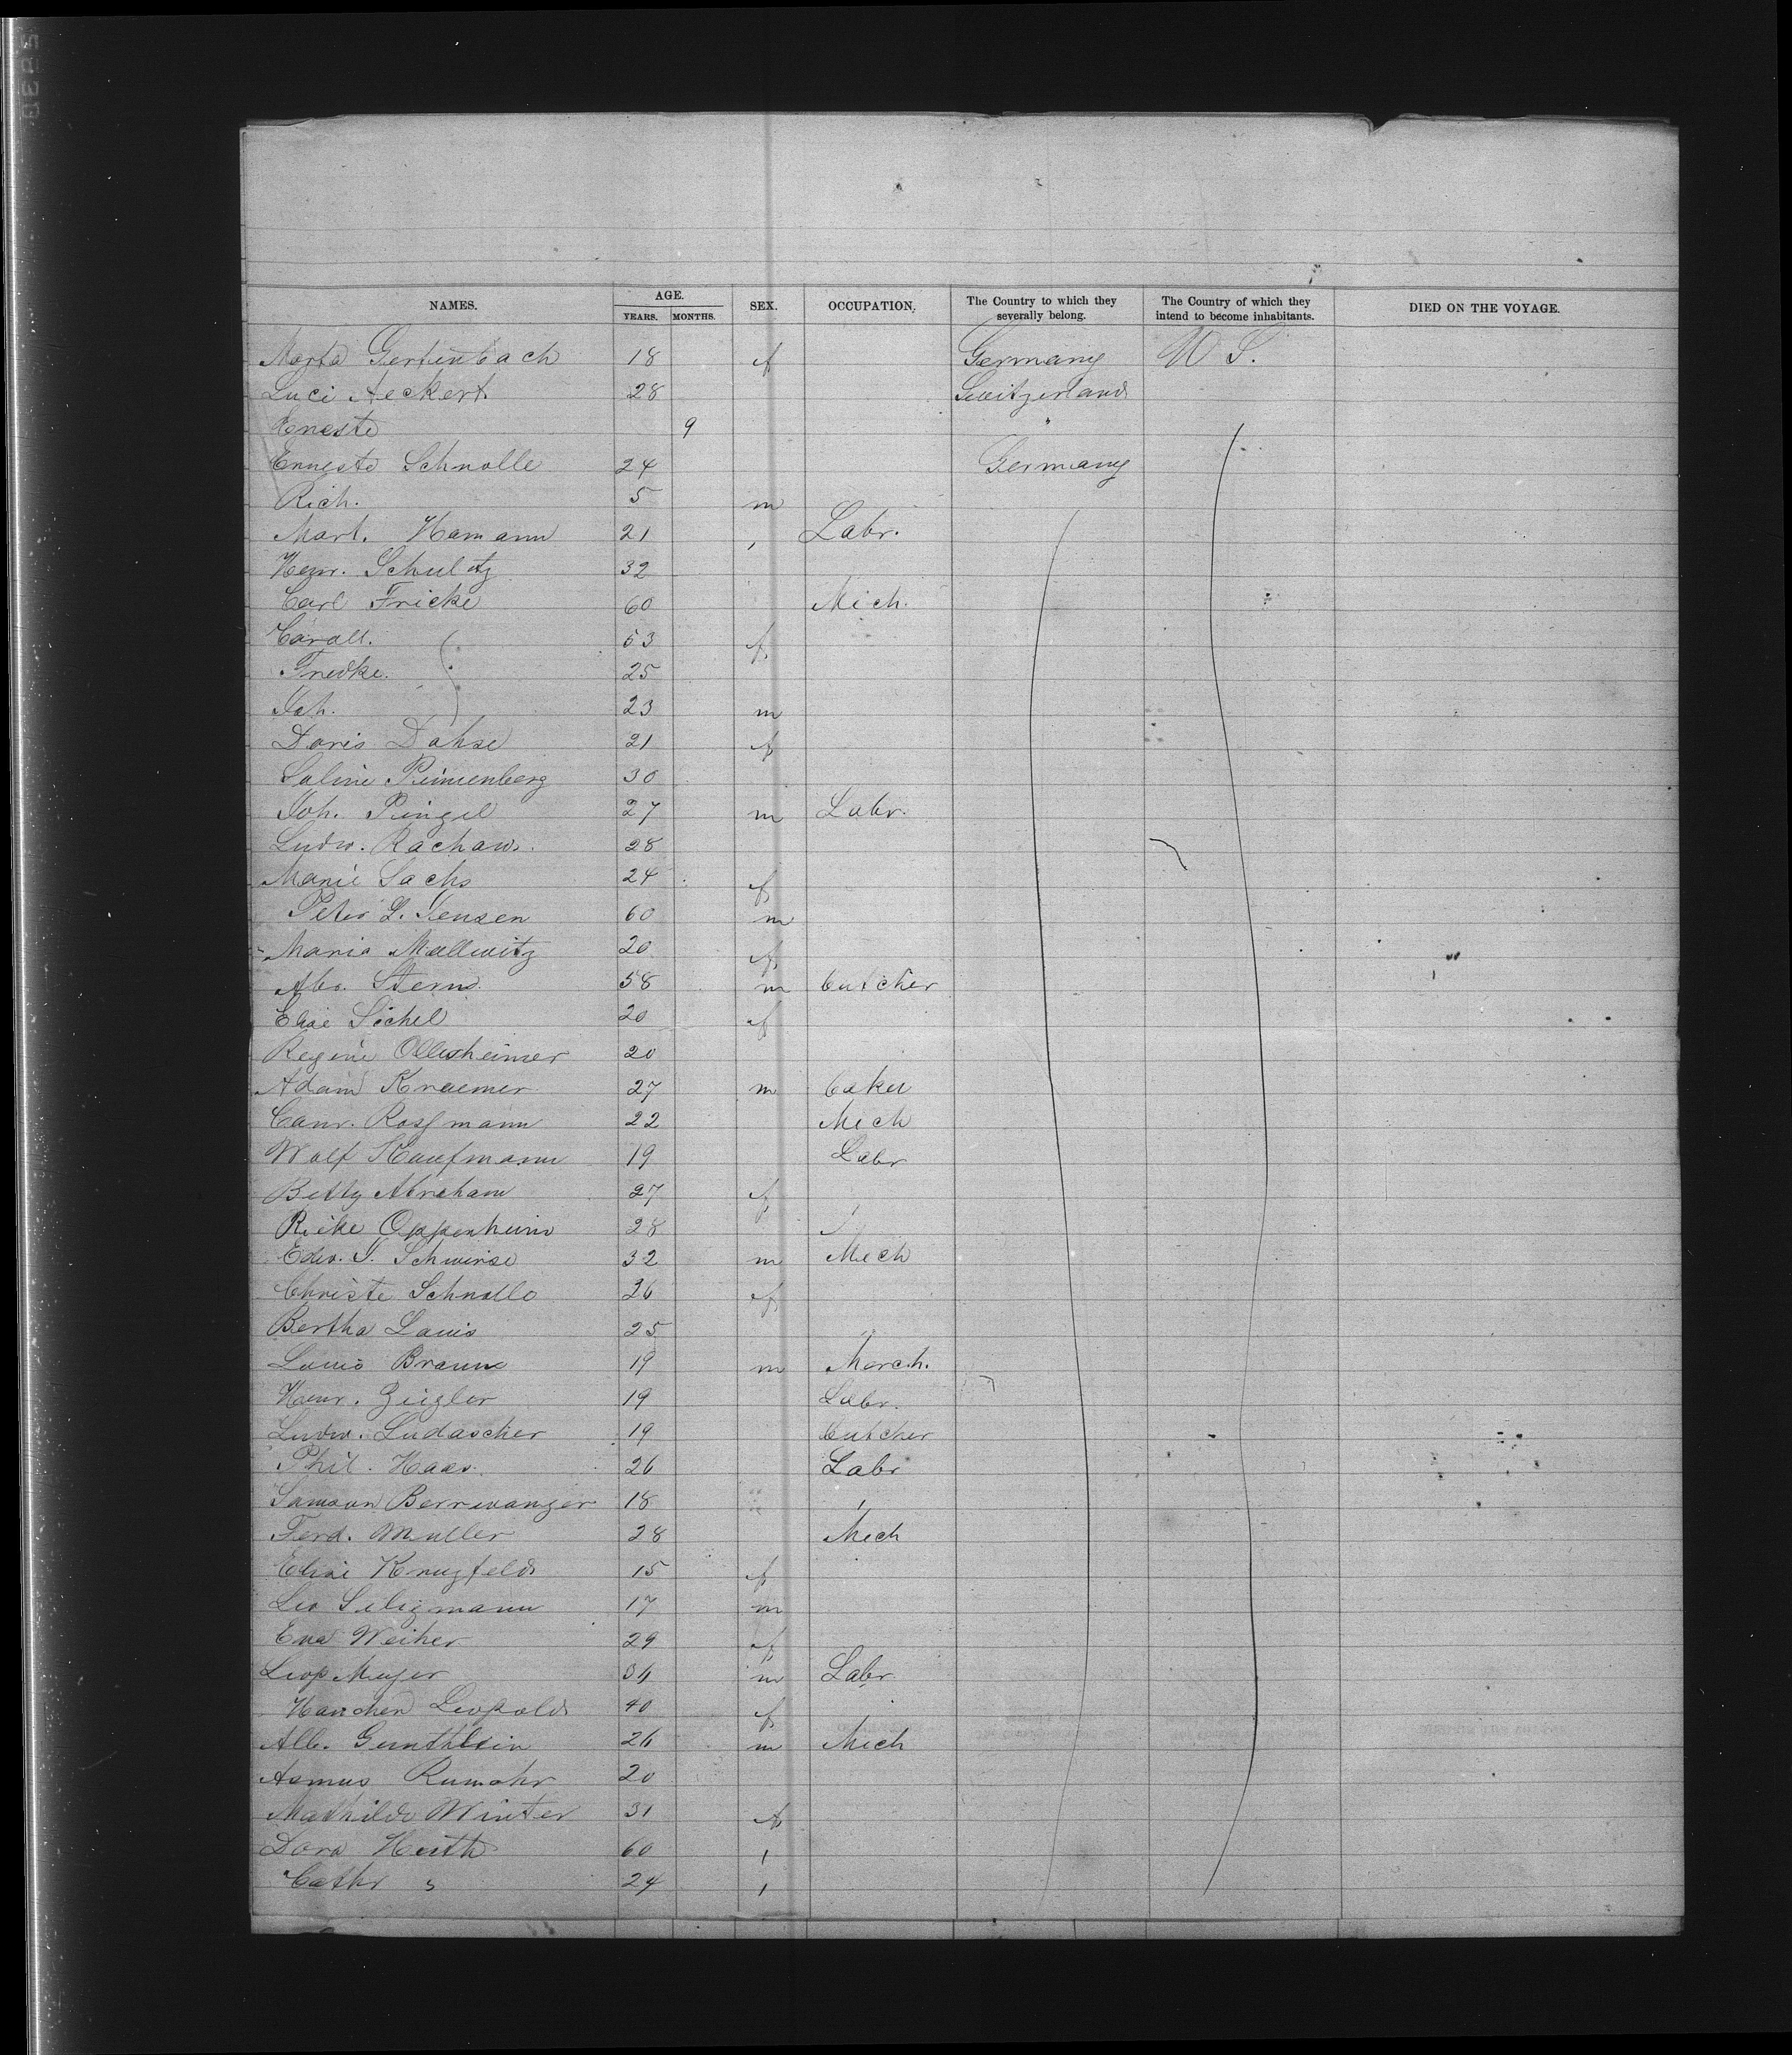 NAMES. AGE. YEARS. MONTHS. SEX. OCCUPATION. The Country to which they severally belong. The Country of which they intend to become inhabitants. DIED ON THE VOYAGE.
Marta Gertenbach 18 f Germany U S.
Luci Aeckert 28 Switzerland
Erneste 9 "
Erngste Schnolle 24 Germany
Rich. 5 m
Mart. Hamann 21 , Labr.
Henr. Schultz 32
Carl Fricke 60 Mech.
Caroll. 53 f
Friedke. 25
Joh. 23 m
Doris Dahse 21 f
Saline Pimenberg 30
Joh. Pingel 27 m Labr.
Ludw. Rachaw. 28
Marie Sachs 24 f
Peter L. Jensen 60 m
Maria Mallwitz 20 f
Abr. Stern 58 m butcher
Elise Sichel 20 f
Regine Ollesheimer 20
Adam Kraemer 27 m baker
Conr. Rossmann 22 Mech
Wolf Kaufmann 19 Labr
Betty Abraham 27 f
Rieke Oppenheim 28
Edw. J. Schwinse 32 m Mech
Christe Schnolle 26 f
Bertha Lauis 25
Louis Braun 19 m March.
Henr. Zeigler 19 Labr.
Ludw. Ludascher 19 butcher
Phil. Haas 26 Labr
Samson Berrwanger 18 ,
Ferd. Muller 28 Mech
Elise Krugfeld 15 f
Leo Seligmann 17 m
Eva Weiher 29 f
Leop Meyer 36 m Labr
Hanchen Leopold 40 f
Alb. Gunthlein 26 m Mech
Asmus Rumohr 20
Mathilde Winter 31 f
Dora Huth 60 ,
Cathr " 24 ,